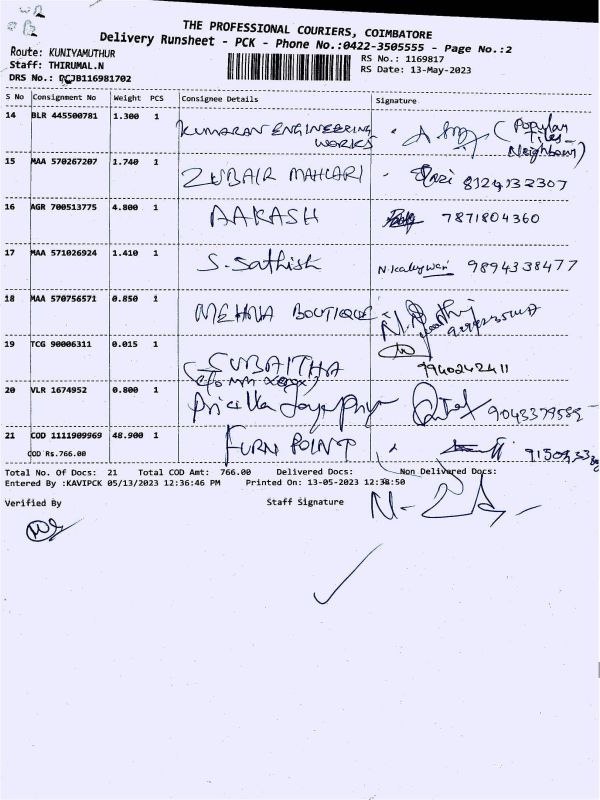 THE PROFESSIONAL COURIERS, COIMBATORE
Delivery Runsheet - PCK - Phone No.:0422-3505555 - Page No.:2
Route: KUNIYAMUTHUR
RS No.: 1169817
Staff: THIRUMAL.N
RS Date: 13-May-2023
DRS No.: PCJB116981702
S No Consignment No Weight PCS Consignee Details Signature
14 BLR 445500781 1.300 1 KUMARAN ENGINEERING WORKS (Popular Tiles - Neighbour)
15 MAA 570267207 1.740 1 ZUBAIR MAHLARI 8124132307
16 AGR 700513775 4.800 1 AAKASH 7871804360
17 MAA 571026924 1.410 1 S. Sathish N.Kaleeswari 9894338477
18 MAA 570756571 0.850 1 MEHNA BOUTIQUE
19 TCG 90006311 0.015 1 SUBAITHA 9940242411
20 VLR 1674952 0.800 1 Pricilla 9043379589
21 COD 1111909969 48.900 1 FURN POINT
COD Rs.766.00
Total No. Of Docs: 21 Total COD Amt: 766.00 Delivered Docs: Non Delivered Docs:
Entered By :KAVIPCK 05/13/2023 12:36:46 PM Printed On: 13-05-2023 12:38:50
Verified By Staff Signature